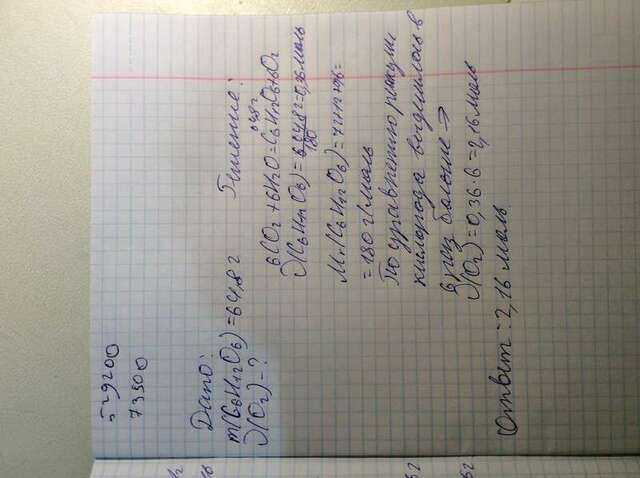 529200
73500
Дано:
m(C6H12O6)=64,8 г
ν(O2)-?
Решение:
64,8 г
6CO2+6H2O=C6H12O6+6O2
ν(C6H12O6)=64,8 г/180=0,36 моль
Mr(C6H12O6)=
=180 г/моль
По уравнению реакции
кислорода выделилось в
6 раз больше →
ν(O2)=0,36·6=2,16 моль
Ответ: 2,16 моль